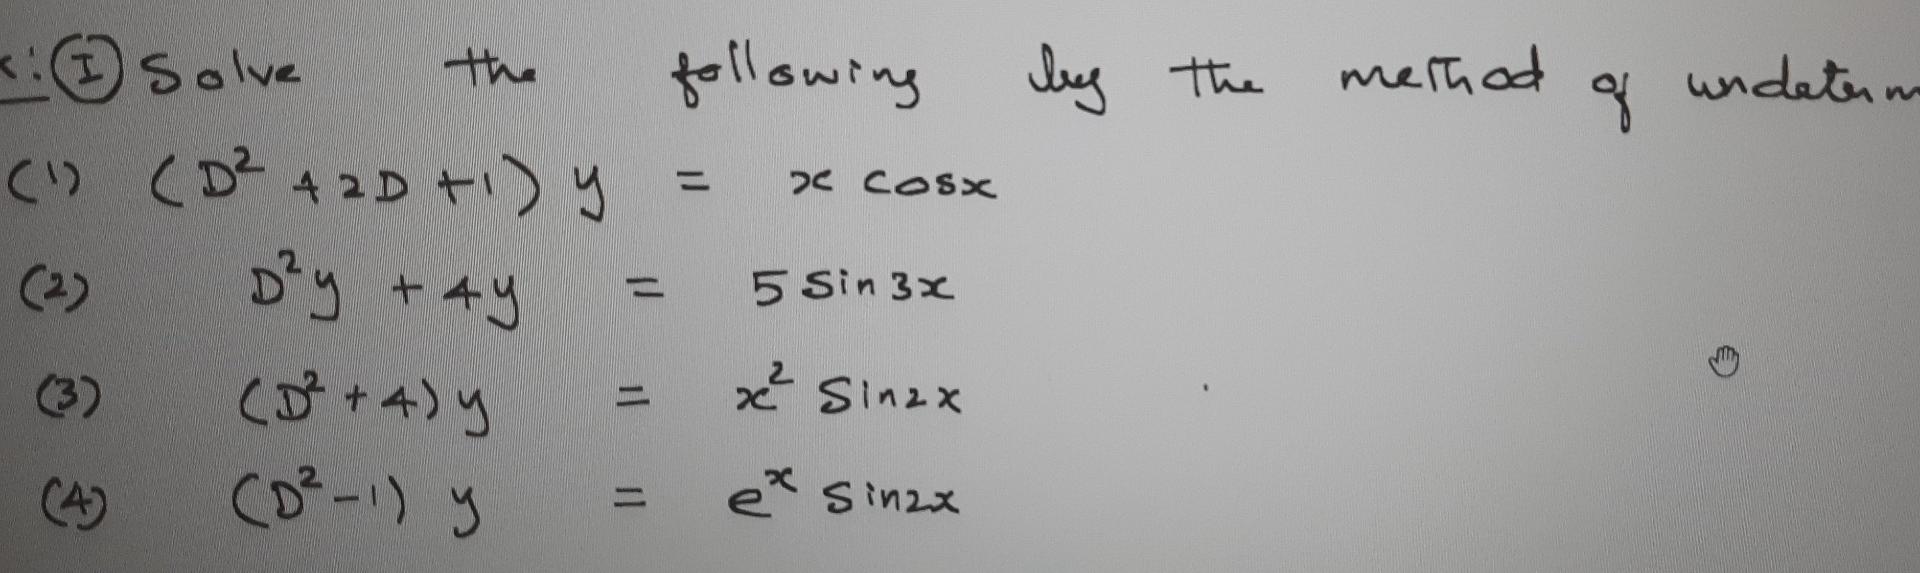 : I Solve the following by the method of undeterm
(1) (D² + 2D + 1) y = x cosx
(2) D²y + 4y = 5 Sin 3x
(3) (D² + 4) y = x² Sin2x
(4) (D² - 1) y = eˣ Sin2x